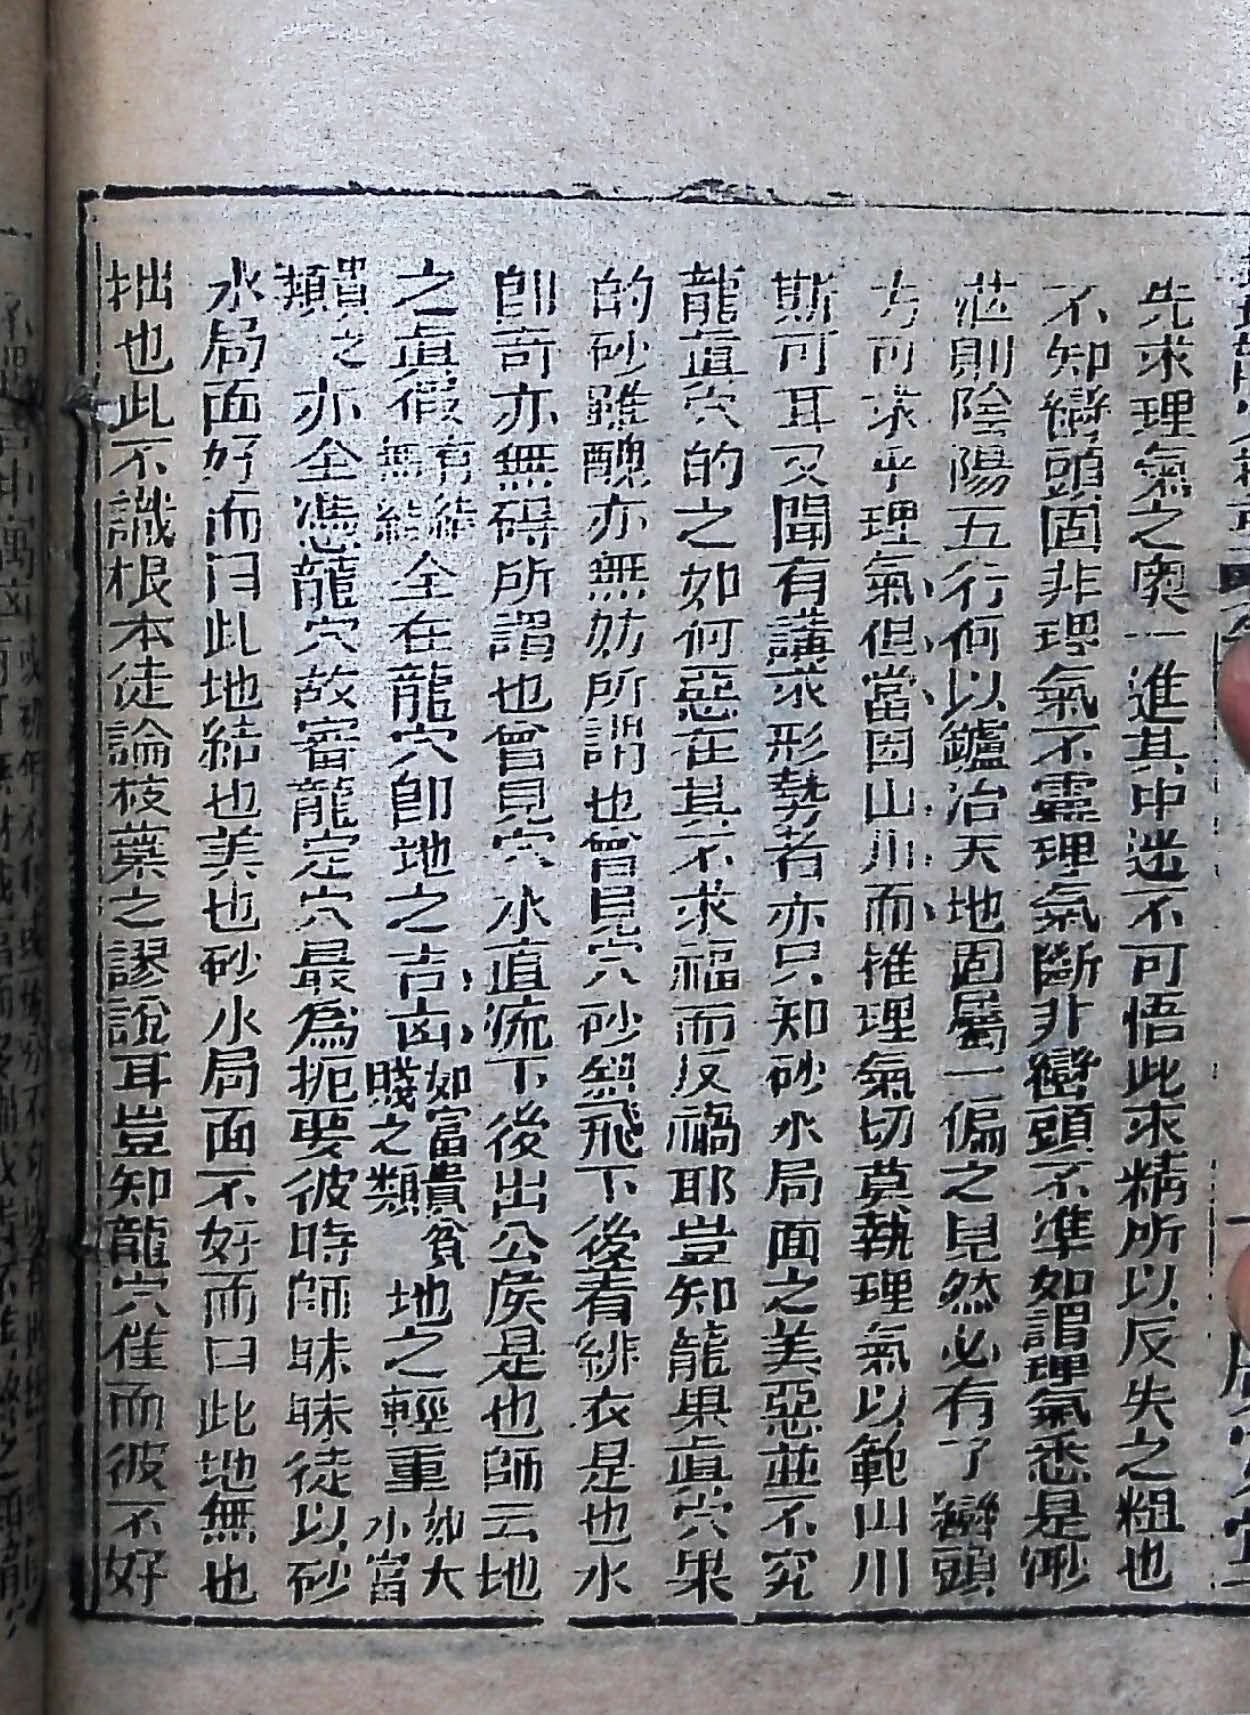 先求理氣之奧一進其中迷不可悟此求精所以反失之粗也
不知巒頭固非理氣不靈理氣斷非巒頭不準如謂理氣悉是渺
茫則陰陽五行何以鑪冶天地固屬一偏之見然必有了巒頭
方可求乎理氣但當因山川而推理氣切莫執理氣以範山川
斯可耳又聞有講求形勢者亦只知砂水局面之美惡並不究
龍真穴的之如何惡在其不求福而反禍耶豈知龍果真穴果
的砂雖醜亦無妨所謂也曾見穴砂飛下後着緋衣是也水
卽奇亦無碍所謂也曾見穴水直流下後出公侯是也師云地
之真假有結無結全在龍穴卽地之吉凶如富貴貧賤之類地之輕重如大小富
貴之類亦全憑龍穴故審龍定穴最為扼要彼時師昧昧徒以砂
水局面好而曰此地結也美也砂水局面不好而曰此地無也
拙也此不識根本徒論枝葉之謬說耳豈知龍穴佳而彼不好